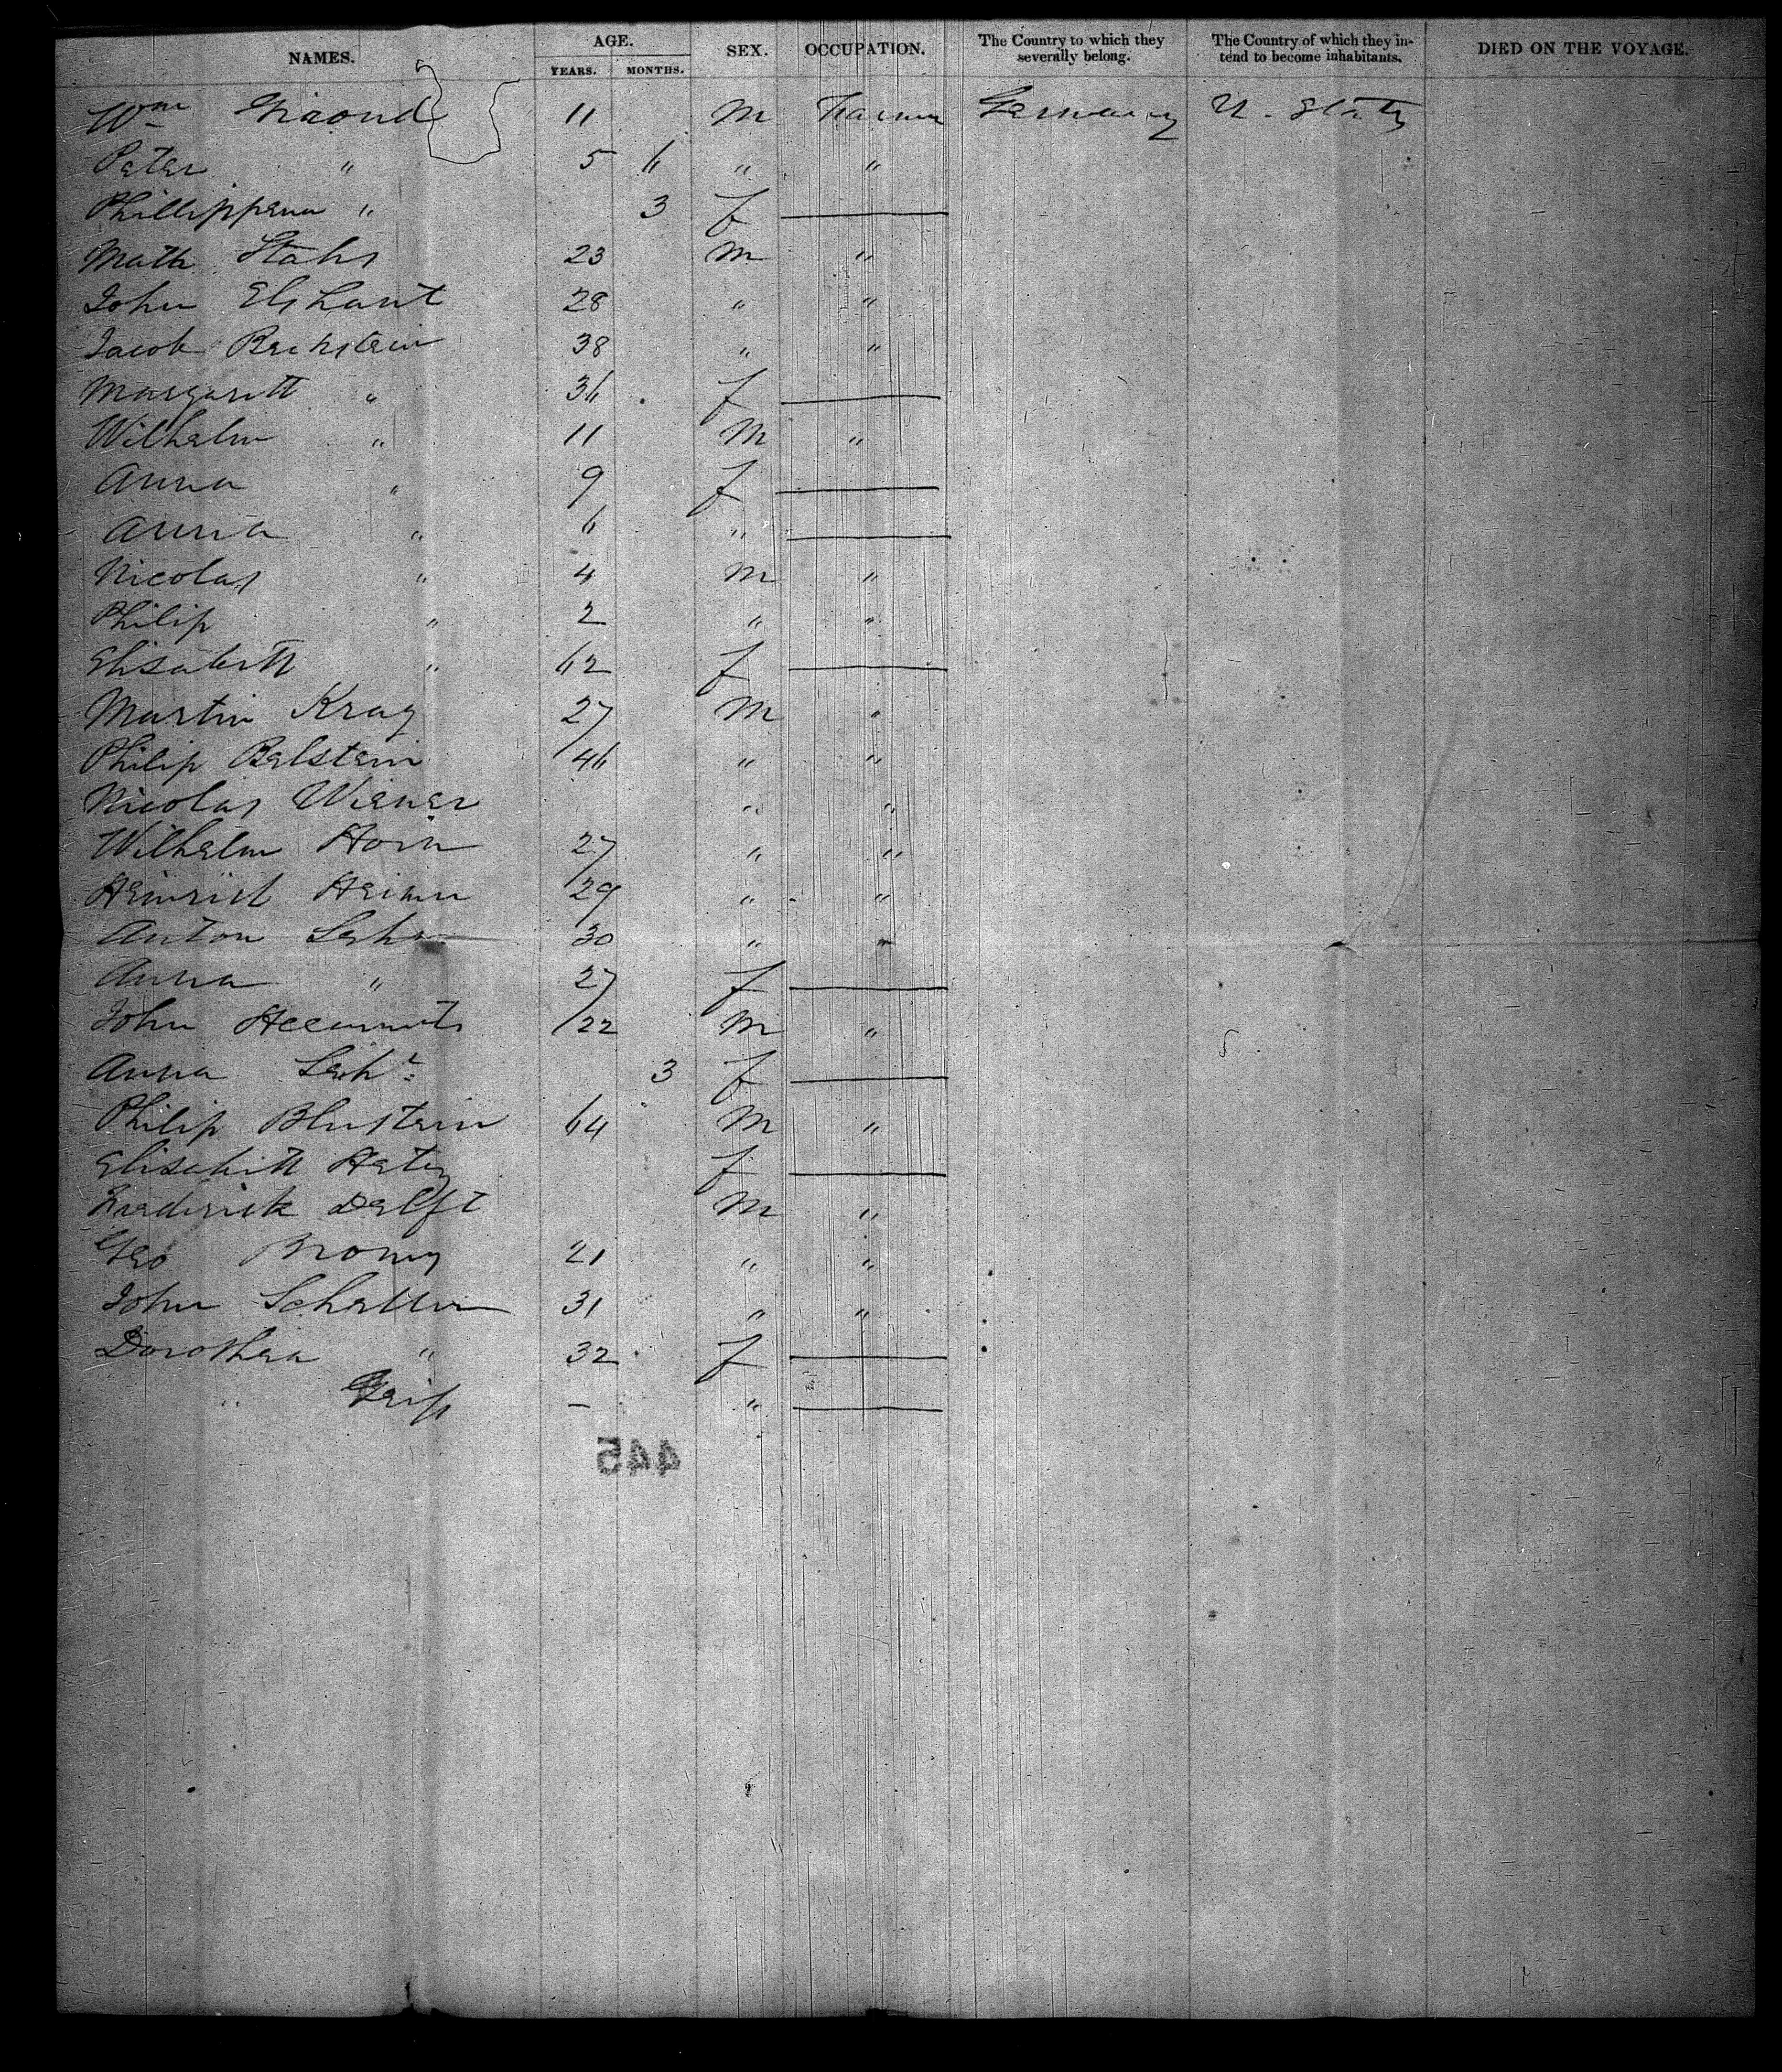 NAMES. AGE. SEX. OCCUPATION. The Country to which they severally belong. The Country of which they intend to become inhabitants. DIED ON THE VOYAGE.
YEARS. MONTHS.
Wm 11 M Farmer Germany U. States
Peter " 5 6 " "
Phillippena " 3 f
Math Stahs 23 M "
John 28 " "
Jacob Bechstein 38 " "
Margarett " 36 f
Wilhelm " 11 M "
Anna " 9 f
Anna " 6 "
Nicolas " 4 M "
Philip " 2 " "
Elisabeth " 62 f
Martin Krag 27 M "
Philip Belstein 46 " "
Nicolas Wiener " "
Wilhelm Horn 27 " "
Heinrich Heimn 29 " "
Anton 30 " "
Anna " 27 f
John 22 M "
Anna 3 f
Philip Blustein 64 M "
Elisabeth f
Frederick Delft M "
Geo 21 " "
John 31 " "
Dorothea " 32 f
" – "
445